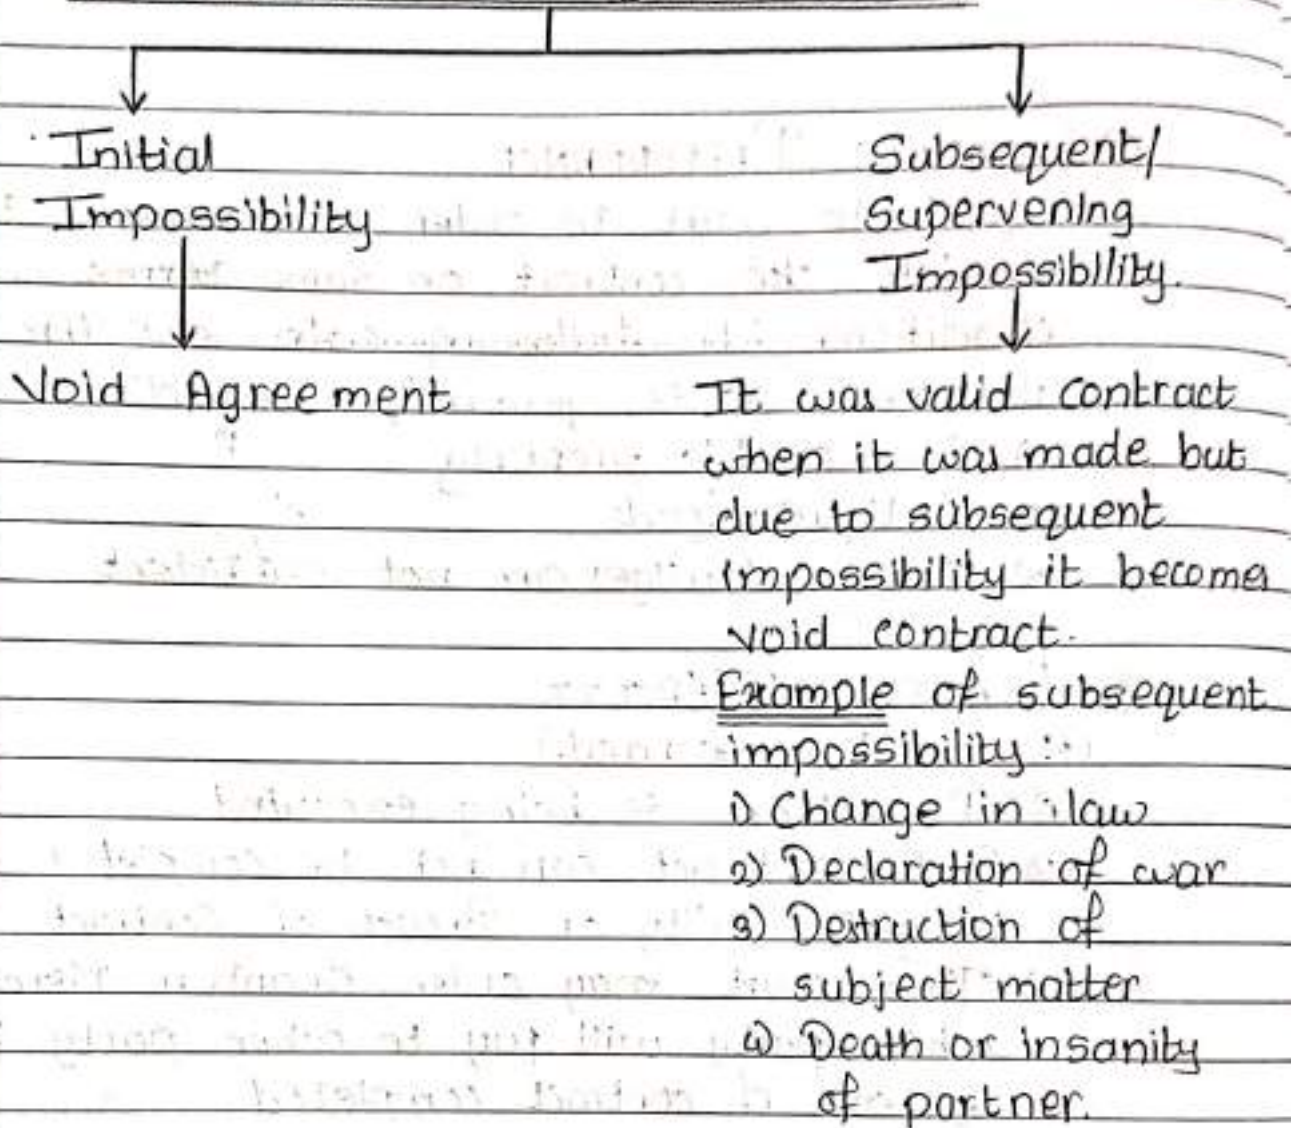 Initial
Impossibility
Void Agreement
Subsequent/
Supervening
Impossibility.
It was valid contract
when it was made but
due to subsequent
impossibility it becomes
void contract.
Example of subsequent
impossibility :
1) Change in law
2) Declaration of war
3) Destruction of
subject matter
4) Death or insanity
of partner.